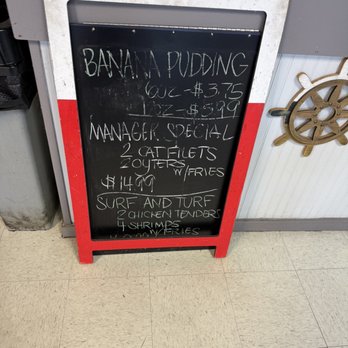 BANANA PUDDING
6oz-$3.75
12oz-$5.99
MANAGER SPECIAL
2 CATFILETS
2 OYTERS
W/FRIES
$14.99
SURF AND TURF
2 CHICKEN TENDERS
4 SHRIMPS
W/FRIES